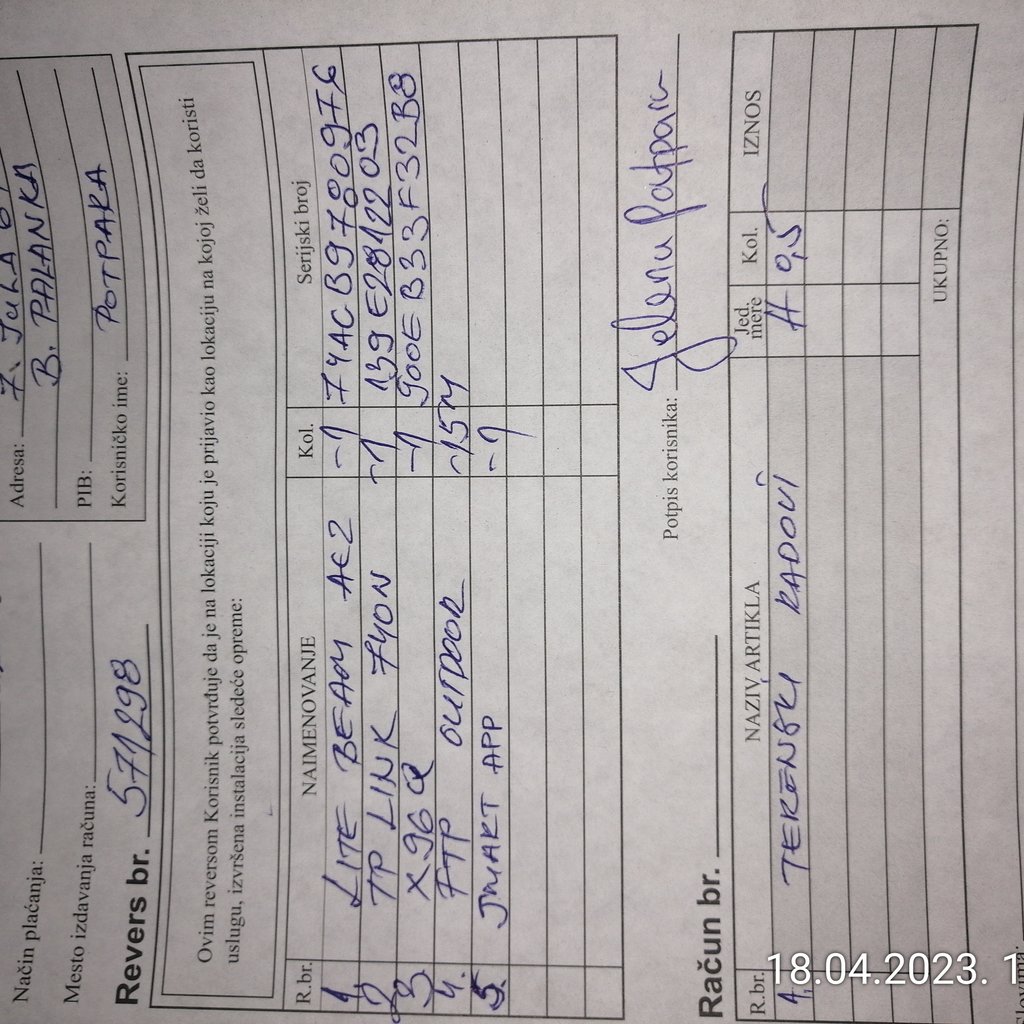 Adresa: 7. JULA
B. PALANKA
PIB:
Korisničko ime: POTPARA
Način plaćanja:
Mesto izdavanja računa:
Revers br. 571298
Ovim reversom Korisnik potvrđuje da je na lokaciji koju je prijavio kao lokaciju na kojoj želi da koristi
uslugu, izvršena instalacija sledeće opreme:
R.br. NAIMENOVANJE Kol. Serijski broj
1 LITE BEAM AC2 -1 74ACB97809F6
2 TP LINK 740N -1 139E2812203
3. X96Q -1 900EB33F32B8
4. FTP OUTDOOR -15M
5. SMART APP -1
Potpis korisnika: Jelena Potpara
Račun br.
R.br. NAZIV ARTIKLA Jed. mere Kol. IZNOS
1, TERENSKI RADOVI H 0,5
UKUPNO:
18.04.2023. 1